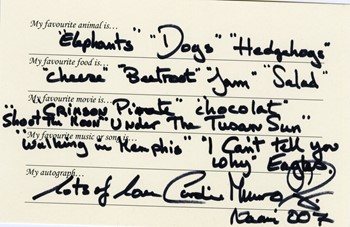 My favourite animal is...
"Elephants" "Dogs" "Hedgehogs"
My favourite food is...
"Cheese" "Beetroot" "Jam" "Salad"
My favourite movie is...
"Crimson Pirate" "Chocolat"
"Shoot The Moon" "Under The Tuscan Sun"
My favourite music or song is...
"Walking in Memphis" "I Can't tell you
why" Eagles.
My autograph...
Lots of love Caroline Munro
007